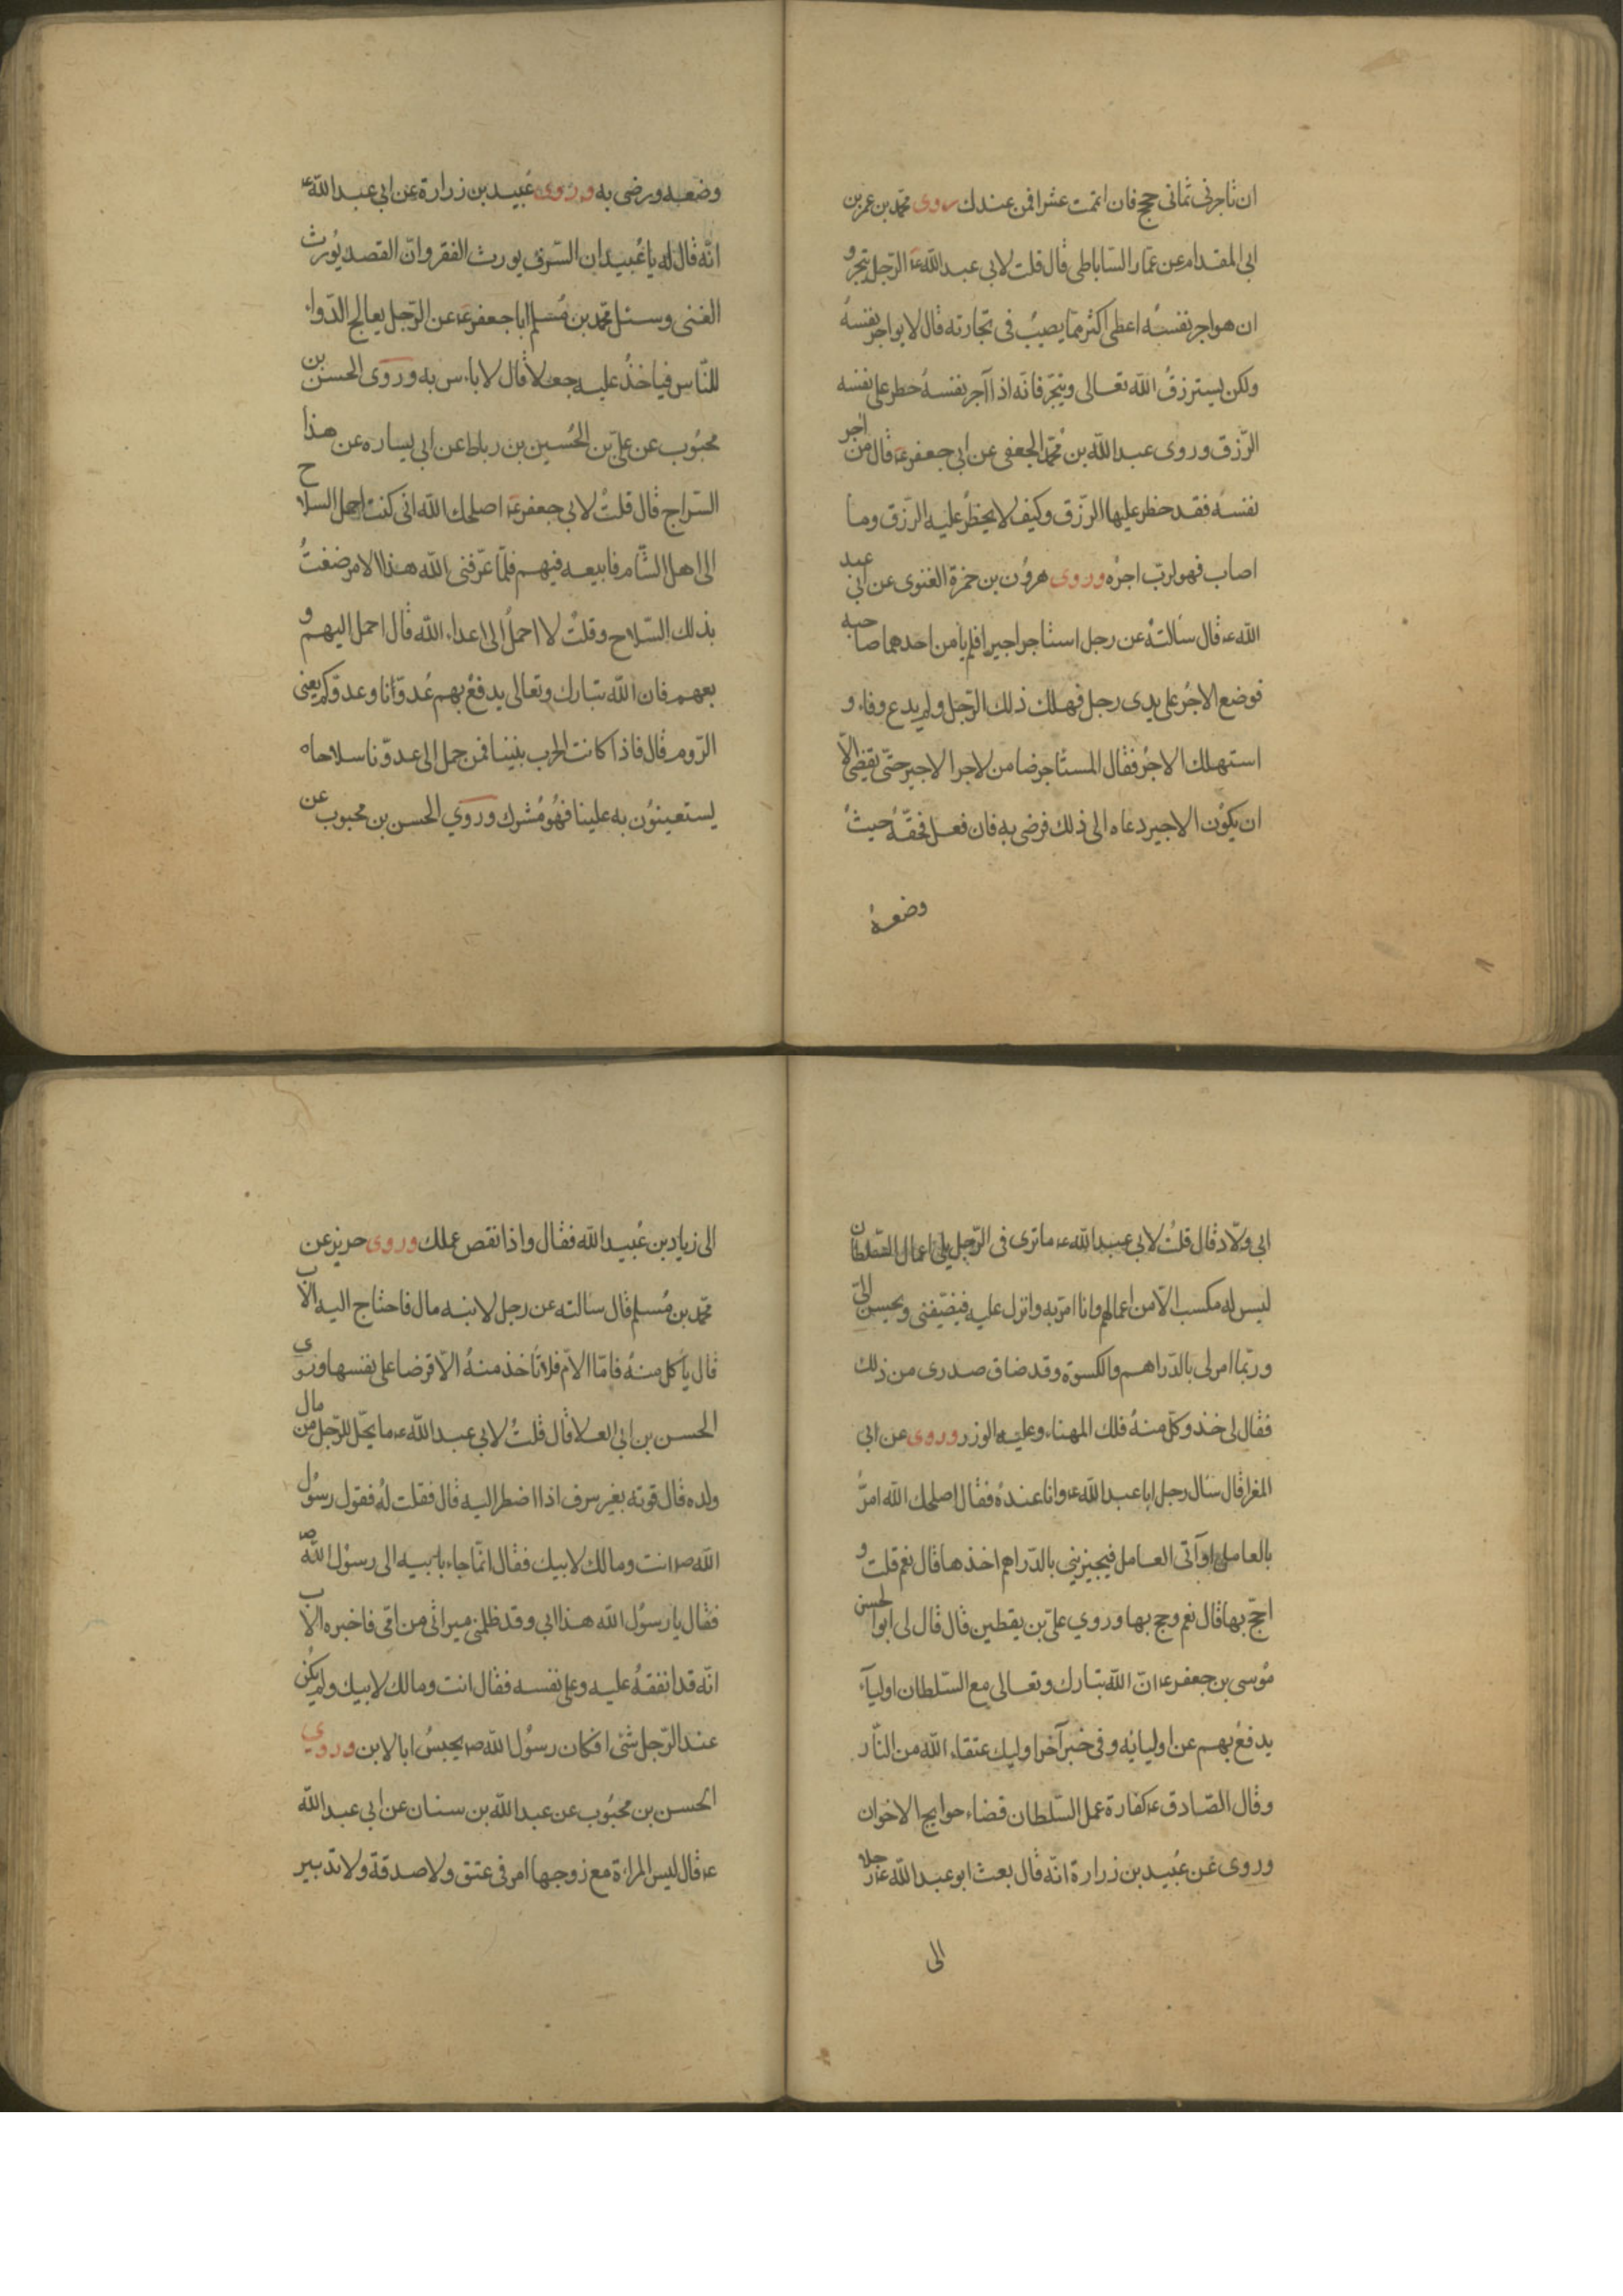 ان تاجرنى ثمانى حجج فان اتممت عشرا فمن عندك روى محمد بن عمر بن
ابى المقدام عن عمار الساباطى قال قلت لابى عبد الله ع الرجل يتجر و
ان هو اجر نفسه اعطى اكثر مما يصيب فى تجارته قال لا يواجر نفسه
ولكن يسترزق الله تعالى ويتجر فانه اذا آجر نفسه حظر على نفسه
الرزق وروى عبد الله بن محمد الجعفى عن ابى جعفر ع قال من اجر
نفسه فقد حظر عليها الرزق وكيف لا يحظر عليه الرزق وما
اصاب فهو لرب اجره وروى هرون بن حمزة الغنوى عن ابى عبد
الله ع قال سالته عن رجل استاجر اجيرا فلم يامن احدهما صاحبه
فوضع الاجر على يدى رجل فهلك ذلك الرجل ولم يدع وفاء و
استهلك الاجر فقال المستاجر ضامن لاجر الاجير حتى يقضى الا
ان يكون الاجير دعاه الى ذلك فرضى به فان فعل فحقه حيث
وضعه
وضعه ورضى به وروى عبيد بن زرارة عن ابى عبد الله ع
انه قال له يا عبيد ان السرف يورث الفقر وان القصد يورث
الغنى وسئل محمد بن مسلم ابا جعفر ع عن الرجل يعالج الدواء
للناس فياخذ عليه جعلا قال لا باس به وروى الحسن بن
محبوب عن على بن الحسين بن رباط عن ابى يساره عن هذا
السراج قال قلت لابي جعفر ع اصلحك الله انى كنت احمل السلاح
الى اهل الشام فابيعه فيهم فلما عرفنى الله هذا الامر ضغت
بذلك السلاح وقلت لا احمل الى اعداء الله قال احمل اليهم و
بعهم فان الله تبارك وتعالى يدفع بهم عدوانا وعدوكم يعنى
الروم قال فاذا كانت الحرب بيننا فمن حمل الى عدونا سلاحا
يستعينون به علينا فهو مشرك وروي الحسن بن محبوب عن
ابى ولاد قال قلت لابي عبد الله ع ما ترى فى الرجل يلى اعمال السلطان
ليس له مكسب الا من اعمالهم وانا امر به وانزل عليه فيضيفنى ويحسن الى
وربما امر لى بالدراهم والكسوة وقد ضاق صدرى من ذلك
فقال لى خذ وكل منه فلك المهناء وعليه الوزر وروى عن ابى
المغرا قال سال رجل ابا عبد الله ع وانا عنده فقال اصلحك الله امر
بالعامل او آتى العامل فيجيزني بالدراهم اخذها قال نعم قلت و
احج بها قال نعم وحج بها وروي على بن يقطين قال قال لى ابو الحسن
موسى بن جعفر ع ان الله تبارك وتعالى مع السلطان اولياء
يدفع بهم عن اوليائه وفى خبر آخر اوليك عتقاء الله من النار
وقال الصادق ع كفارة عمل السلطان قضاء حوايج الاخوان
وروى عن عبيد بن زرارة انه قال بعث ابو عبد الله ع رجلا
الى
الى زياد بن عبيد الله فقال واذا نقص عملك وروى حريز عن
محمد بن مسلم قال سالته عن رجل لابنه مال فاحتاج اليه الاب
قال ياكل منه فاما الام فلا تاخذ منه الا قرضا على نفسها وروى
الحسن بن ابى العلا قال قلت لابي عبد الله ع ما يحل للرجل من مال
ولده قال قوته بغير سرف اذا اضطر اليه قال فقلت له فقول رسول
الله ص انت ومالك لابيك فقال انما جاء بابيه الى رسول الله ص
فقال يا رسول الله هذا ابي وقد ظلمنى ميراثى من امى فاخبره الاب
انه قد انفقه عليه وعلى نفسه فقال انت ومالك لابيك ولم يكن
عند الرجل شئ افكان رسول الله ص يحبس ابا لابن وروي
الحسن بن محبوب عن عبد الله بن سنان عن ابى عبد الله
ع قال ليس للمراءة مع زوجها امر فى عتق ولا صدقة ولا تدبير